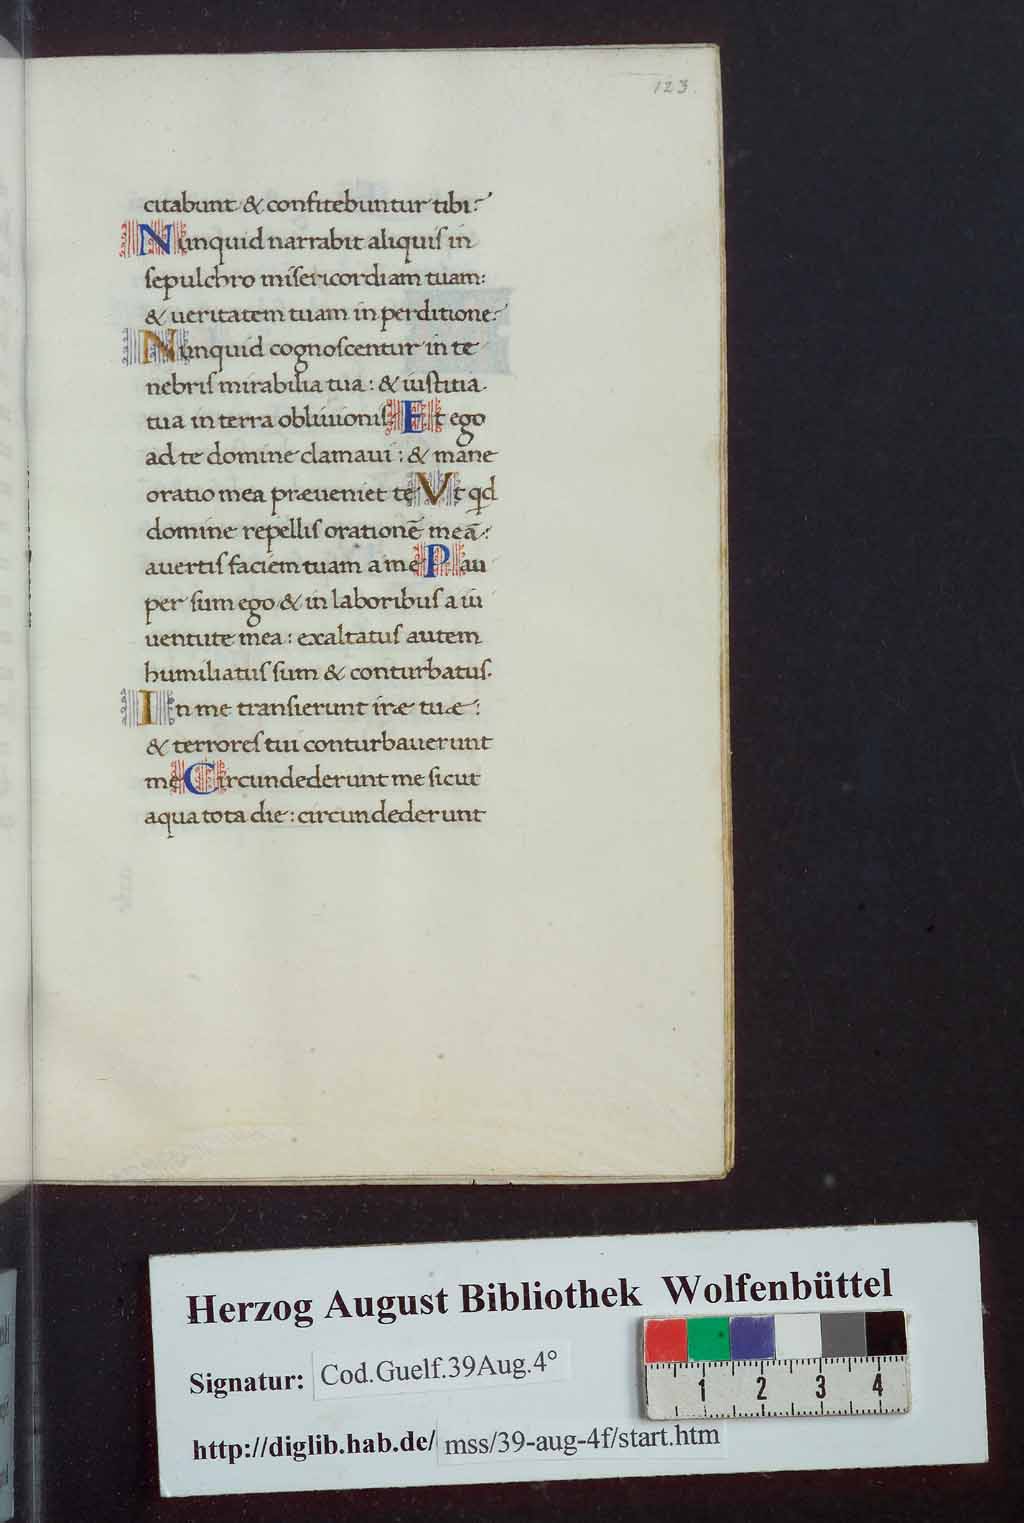 123.
citabunt & confitebuntur tibi?
Nunquid narrabit aliquis in
sepulchro misericordiam tuam:
& ueritatem tuam in perditione?
Nunquid cognoscentur in te
nebris mirabilia tua: & iustitia
tua in terra obliuionis Et ego
ad te domine clamaui: & mane
oratio mea præueniet te Vt qd
domine repellis orationē meā:
auertis faciem tuam a me Pau
per sum ego & in laboribus a iu
uentute mea: exaltatus autem
humiliatus sum & conturbatus.
In me transierunt iræ tuæ:
& terrores tui conturbauerunt
me Circundederunt me sicut
aqua tota die: circundederunt
Herzog August Bibliothek Wolfenbüttel
Signatur: Cod.Guelf.39Aug.4°
http://diglib.hab.de/ mss/39-aug-4f/start.htm
1 2 3 4